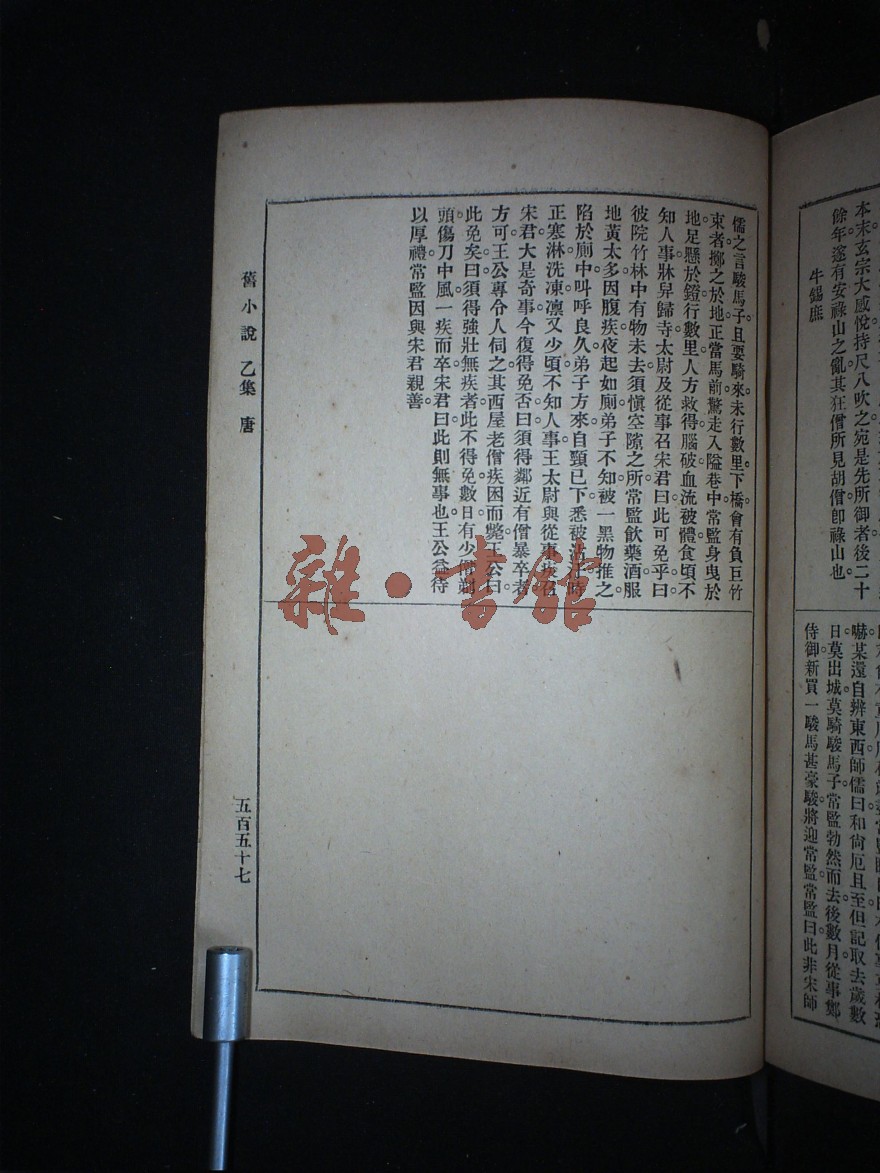 本末玄宗大感悅持尺八吹之宛是先所御者後二十
餘年遂有安祿山之亂其狂僧所見胡僧卽祿山也
牛錫庶
嚇某還自辨東西師儒曰和尙厄且至但記取去歲數
日莫出城莫騎駿馬子常監勃然而去後數月從事鄭
侍御新買一駿馬甚豪駿將迎常監常監曰此非宋師
儒之言駿馬子且要騎來未行數里下橋會有負巨竹
束者擲之於地正當馬前驚走入隘巷中常監身曳於
地足懸於鐙行數里人方救得腦破血流被體食頃不
知人事牀舁歸寺太尉及從事召宋君曰此可免乎曰
彼院竹林中有物未去須愼空隙之所常監飮藥酒服
地黃太多因腹疾夜起如厠弟子不知被一黑物推之
陷於厠中叫呼良久弟子方來自頸已下悉被沾 時
正寒淋洗凍凛又少頃不知人事王太尉與從事 召
宋君大是奇事今復得免否曰須得鄰近有僧暴卒者
方可王公專令人伺之其西屋老僧疾困而斃王公曰
此免矣曰須得強壯無疾者此不得免數日有少僧剃
頭傷刀中風一疾而卒宋君曰此則無事也王公益待
以厚禮常監因與宋君親善
舊小說 乙集 唐
五百五十七
雜·書館